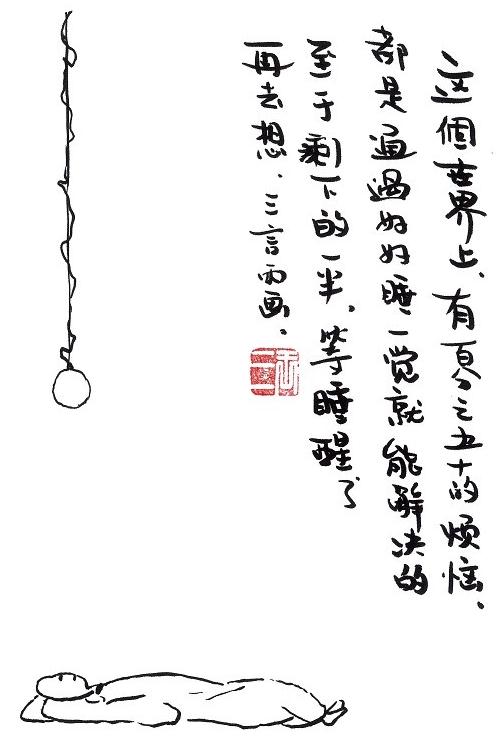 这個世界上、有百分之五十的烦恼、
都是通過好好睡一觉就能解决的
至于剩下的一半、等睡醒了
再去想、三言而画、